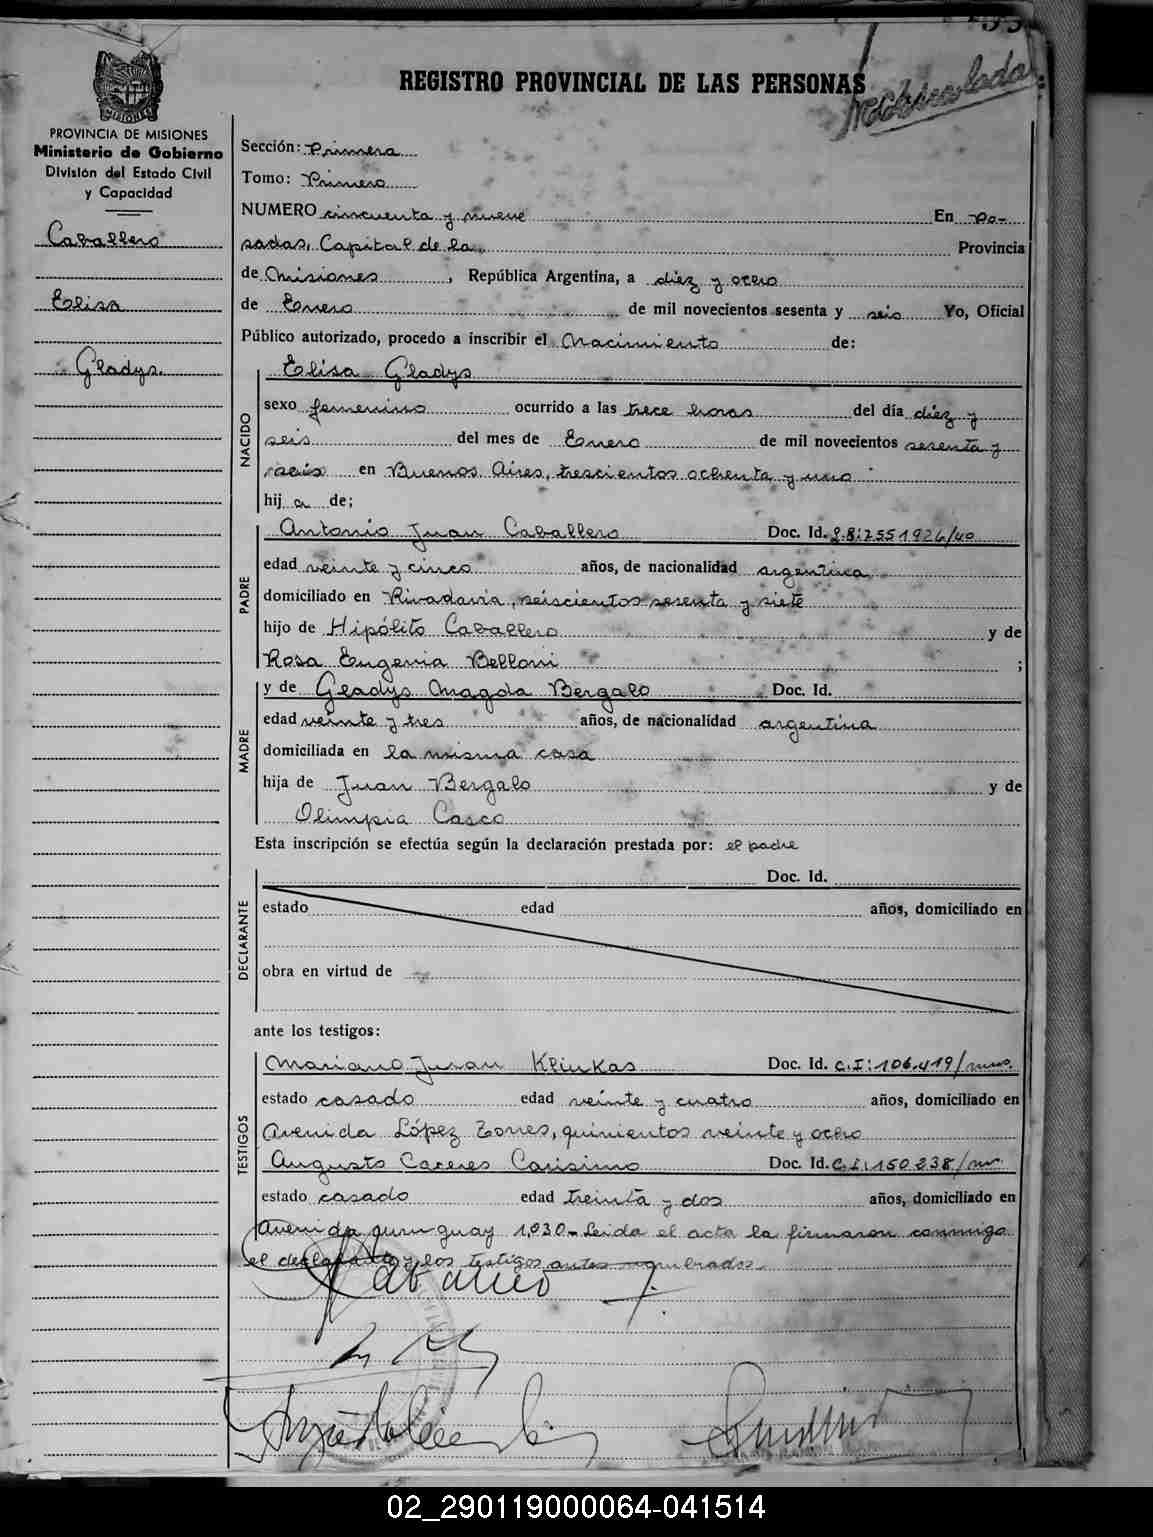 Matriculada
REGISTRO PROVINCIAL DE LAS PERSONAS
MISIONES
PROVINCIA DE MISIONES
Ministerio de Gobierno
División del Estado Civil
y Capacidad
Caballero
Elisa
Gladys.
Sección: Primera
Tomo: Primero
NUMERO cincuenta y nueve En Po-
sadas, Capital de la Provincia
de Misiones, República Argentina, a diez y ocho
de Enero de mil novecientos sesenta y seis Yo, Oficial
Público autorizado, procedo a inscribir el Nacimiento de:
NACIDO
Elisa Gladys
sexo femenino ocurrido a las trece horas del día diez y
seis del mes de Enero de mil novecientos sesenta y
seis en Buenos Aires, trescientos ochenta y uno
hij a de;
PADRE
Antonio Juan Caballero Doc. Id.
edad veinte y cinco años, de nacionalidad argentina
domiciliado en Rivadavia, seiscientos sesenta y siete
hijo de Hipólito Caballero y de
Rosa Eugenia Belloni ;
MADRE
y de Gladys Magda Bergalo Doc. Id.
edad veinte y tres años, de nacionalidad argentina
domiciliada en la misma casa
hija de Juan Bergalo y de
Olimpia Casco
Esta inscripción se efectúa según la declaración prestada por: el padre
DECLARANTE
Doc. Id.
estado edad años, domiciliado en
obra en virtud de
ante los testigos:
TESTIGOS
Mariano Juan Kliukas Doc. Id. C.I: 106.419/mns.
estado casado edad veinte y cuatro años, domiciliado en
Avenida López Torres, quinientos veinte y ocho
Augusto Caceres Carisimo Doc. Id. C.I. 150.238/
estado casado edad treinta y dos años, domiciliado en
Avenida uruguay 1,030.- Leida el acta la firmaron conmigo
el declarante y los testigos antes nombrados.
Caballero
02_290119000064-041514